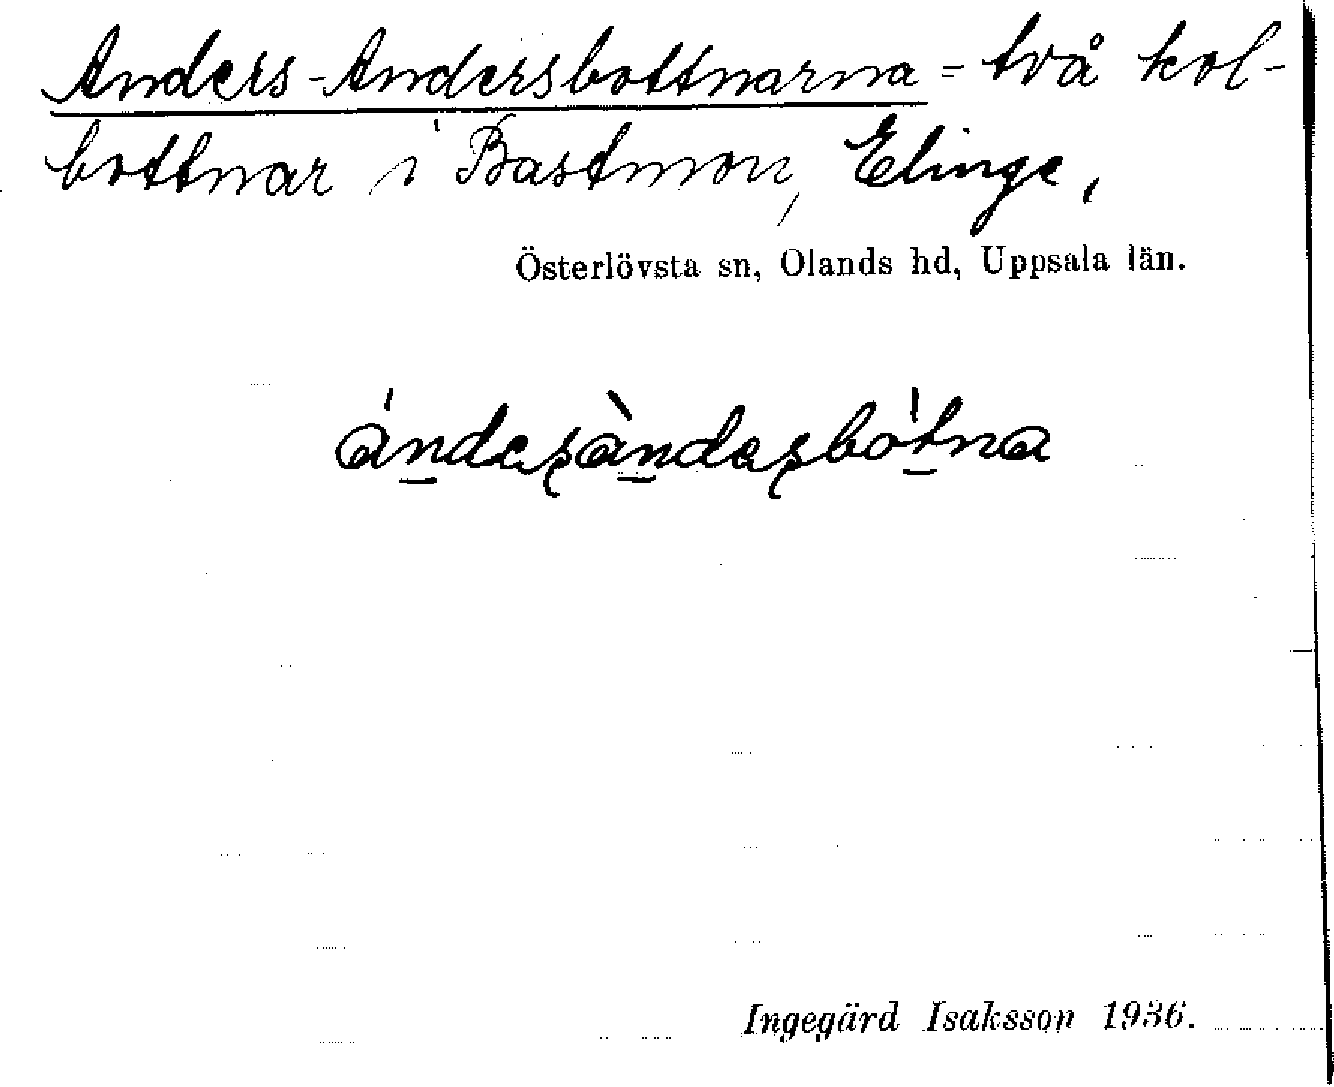 Anders-Andersbottnarna = två kol-
bottnar i Bastmon, Elinge,
Österlövsta sn, Olands hd, Uppsala län.
ándesàndesbòtna
Ingegärd Isaksson 1936.